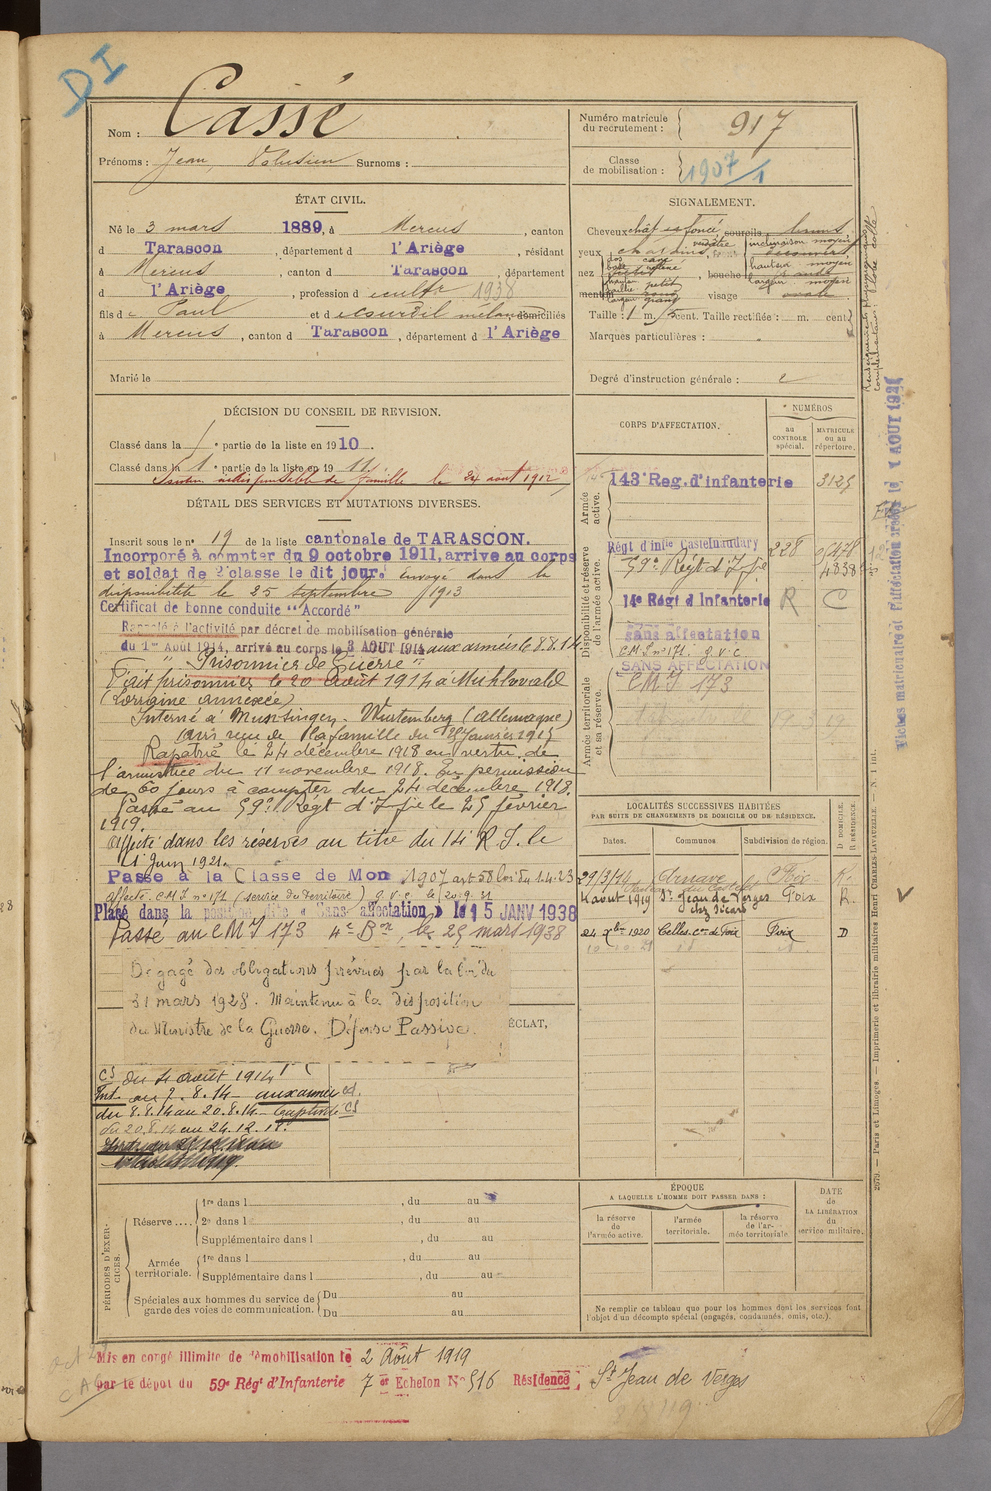 DI
Nom : Cassé
Prénoms : Jean, Volusien Surnoms :
Numéro matricule du recrutement : 917
Classe de mobilisation : 1907/1
ÉTAT CIVIL.
Né le 3 mars 1889, à Mercus, canton
d Tarascon, département d l'Ariège, résidant
à Mercus, canton d Tarascon, département
d l'Ariège, profession d cultr 1938
fils de Paul et d domiciliés
à Mercus, canton d Tarascon, département d l'Ariège
Marié le
SIGNALEMENT.
Cheveux chât foncé sourcils bruns
yeux châtains
nez , bouche
menton visage
Taille : 1 m. cent. Taille rectifiée : m. cent.
Marques particulières :
Degré d'instruction générale : 2
DÉCISION DU CONSEIL DE REVISION.
Classé dans la 1e partie de la liste en 1910.
Classé dans la 1e partie de la liste en 1911
Soutien indispensable de famille le 24 août 1912
DÉTAIL DES SERVICES ET MUTATIONS DIVERSES.
Inscrit sous le n° 19 de la liste cantonale de TARASCON.
Incorporé à compter du 9 octobre 1911, arrive au corps
et soldat de 2e classe le dit jour. Envoyé dans la
disponibilité le 25 septembre 1913
Certificat de bonne conduite "Accordé"
Rappelé à l'activité par décret de mobilisation générale
du 1er Août 1914, arrivé au corps le 3 AOUT 1914 aux armées le 8.8.14
"Prisonnier de Guerre"
Fait prisonnier le 20 Août 1914 à Muhlwald
(Lorraine annexée)
Interné à Munsingen. Wurtemberg (Allemagne)
avis reçu de la famille du 25 Janvier 1915
Rapatrié le 24 décembre 1918 en vertu de
l'armistice du 11 novembre 1918. En permission
de 60 jours à compter du 24 décembre 1918.
Passé au 59e Régt d'Ifie le 25 février
1919.
Affecté dans les réserves au titre du 14 R.I. le
1 Juin 1921.
Passé à la Classe de Mon 1907 art 58 loi du 1.4.23
affecté C.M.I n° 171 (service du Territoire) G.V.C le 20.9.21
Placé dans la position dite « Sans affectation » le 15 JANV 1938
Passé au CMI 173 4e Bon, le 25 mars 1938
Dégagé des obligations prévues par la loi du
31 mars 1928. Maintenu à la disposition
du Ministre de la Guerre. Défense Passive.
ÉCLAT,
CS du 4 août 1914
Int. au 7.8.14 - aux armées
du 8.8.14 au 20.8.14 - Captivité CS
du 20.8.14 au 24.12.18
CORPS D'AFFECTATION.
NUMÉROS
au CONTROLE spécial.
MATRICULE ou au répertoire.
Armée active.
143e Reg. d'infanterie 3125
Disponibilité et réserve de l'armée active.
Régt d'infie Castelnaudary 228
59e Régt d'Ifie
14e Régt d'Infanterie R C
sans affectation
C.M.I n° 171. G.V.C.
Armée territoriale et sa réserve.
SANS AFFECTATION
CMI 173
LOCALITÉS SUCCESSIVES HABITÉES
PAR SUITE DE CHANGEMENTS DE DOMICILE OU DE RÉSIDENCE.
Dates. Communes. Subdivision de région. D. DOMICILE. R. RÉSIDENCE.
29/3/14 Arnave Foix R.
4 aout 1919 St Jean de Verges Foix R.
24 Xbre 1920 Celles Con de Foix Foix D
PÉRIODES D'EXERCICES.
Réserve....
1re dans l , du au
2e dans l , du au
Supplémentaire dans l , du au
Armée territoriale.
1re dans l , du au
Supplémentaire dans l , du au
Spéciales aux hommes du service de garde des voies de communication.
Du au
Du au
ÉPOQUE
A LAQUELLE L'HOMME DOIT PASSER DANS :
la réserve de l'armée active.
l'armée territoriale.
la réserve de l'armée territoriale.
DATE de LA LIBÉRATION du service militaire.
Ne remplir ce tableau que pour les hommes dont les services font
l'objet d'un décompte spécial (engagés, condamnés, omis, etc.).
Mis en congé illimité de démobilisation le 2 Août 1919
par le dépôt du 59e Régt d'Infanterie 7 er Echelon N° 516 Résidence : St Jean de Verges
2679. — Paris et Limoges. — Imprimerie et librairie militaires Henri CHARLES-LAVAUZELLE. — N. 1 int.